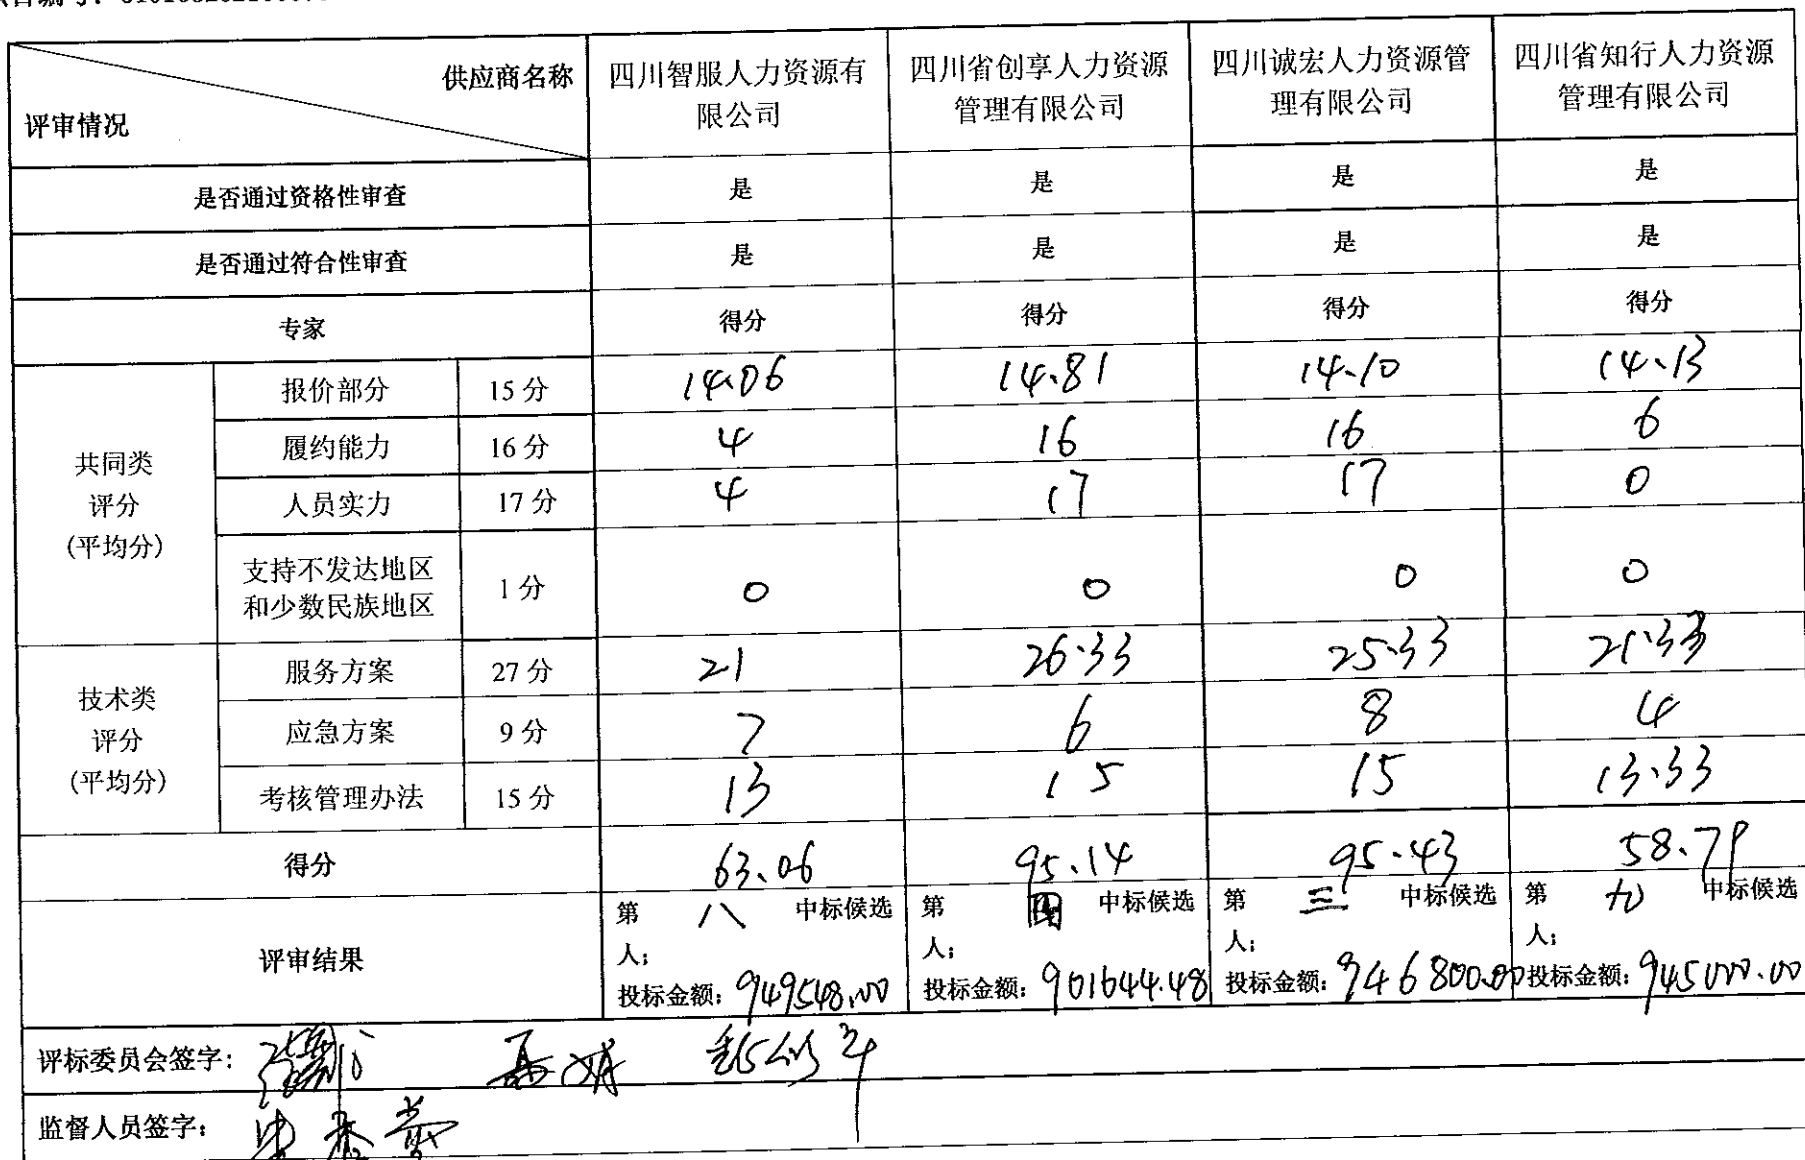 供应商名称
评审情况
四川智服人力资源有
限公司
四川省创享人力资源
管理有限公司
四川诚宏人力资源管
理有限公司
四川省知行人力资源
管理有限公司
是否通过资格性审查 是 是 是 是
是否通过符合性审查 是 是 是 是
专家 得分 得分 得分 得分
共同类
评分
(平均分)
报价部分 15 分 14.06 14.81 14.10 14.13
履约能力 16 分 4 16 16 6
人员实力 17 分 4 17 17 0
支持不发达地区
和少数民族地区
1 分 0 0 0 0
技术类
评分
(平均分)
服务方案 27 分 21 26.33 25.33 21.33
应急方案 9 分 7 6 8 4
考核管理办法 15 分 13 15 15 13.33
得分 63.06 95.14 95.43 58.79
评审结果
第 八 中标候选
人;
投标金额: 949548.00
第 四 中标候选
人;
投标金额: 901644.48
第 三 中标候选
人;
投标金额: 946800.00
第 九 中标候选
人;
投标金额: 945000.00
评标委员会签字:
监督人员签字: